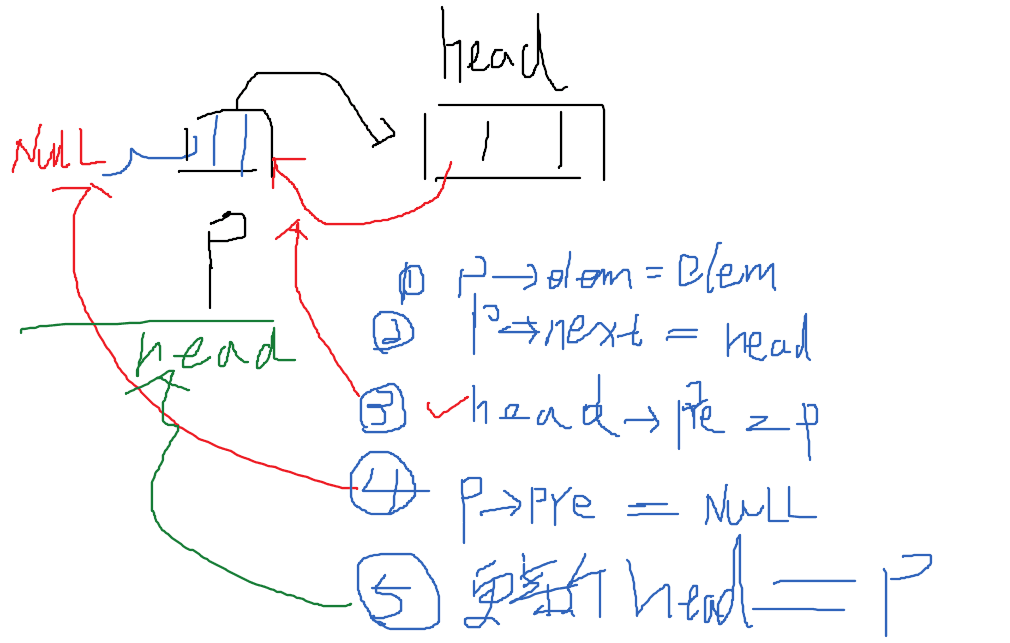 head
NULL
P
head
① P→elem = Elem
② P→next = head
③ ✓ head→pre = P
④ P→pre = NULL
⑤ 更新 head = P